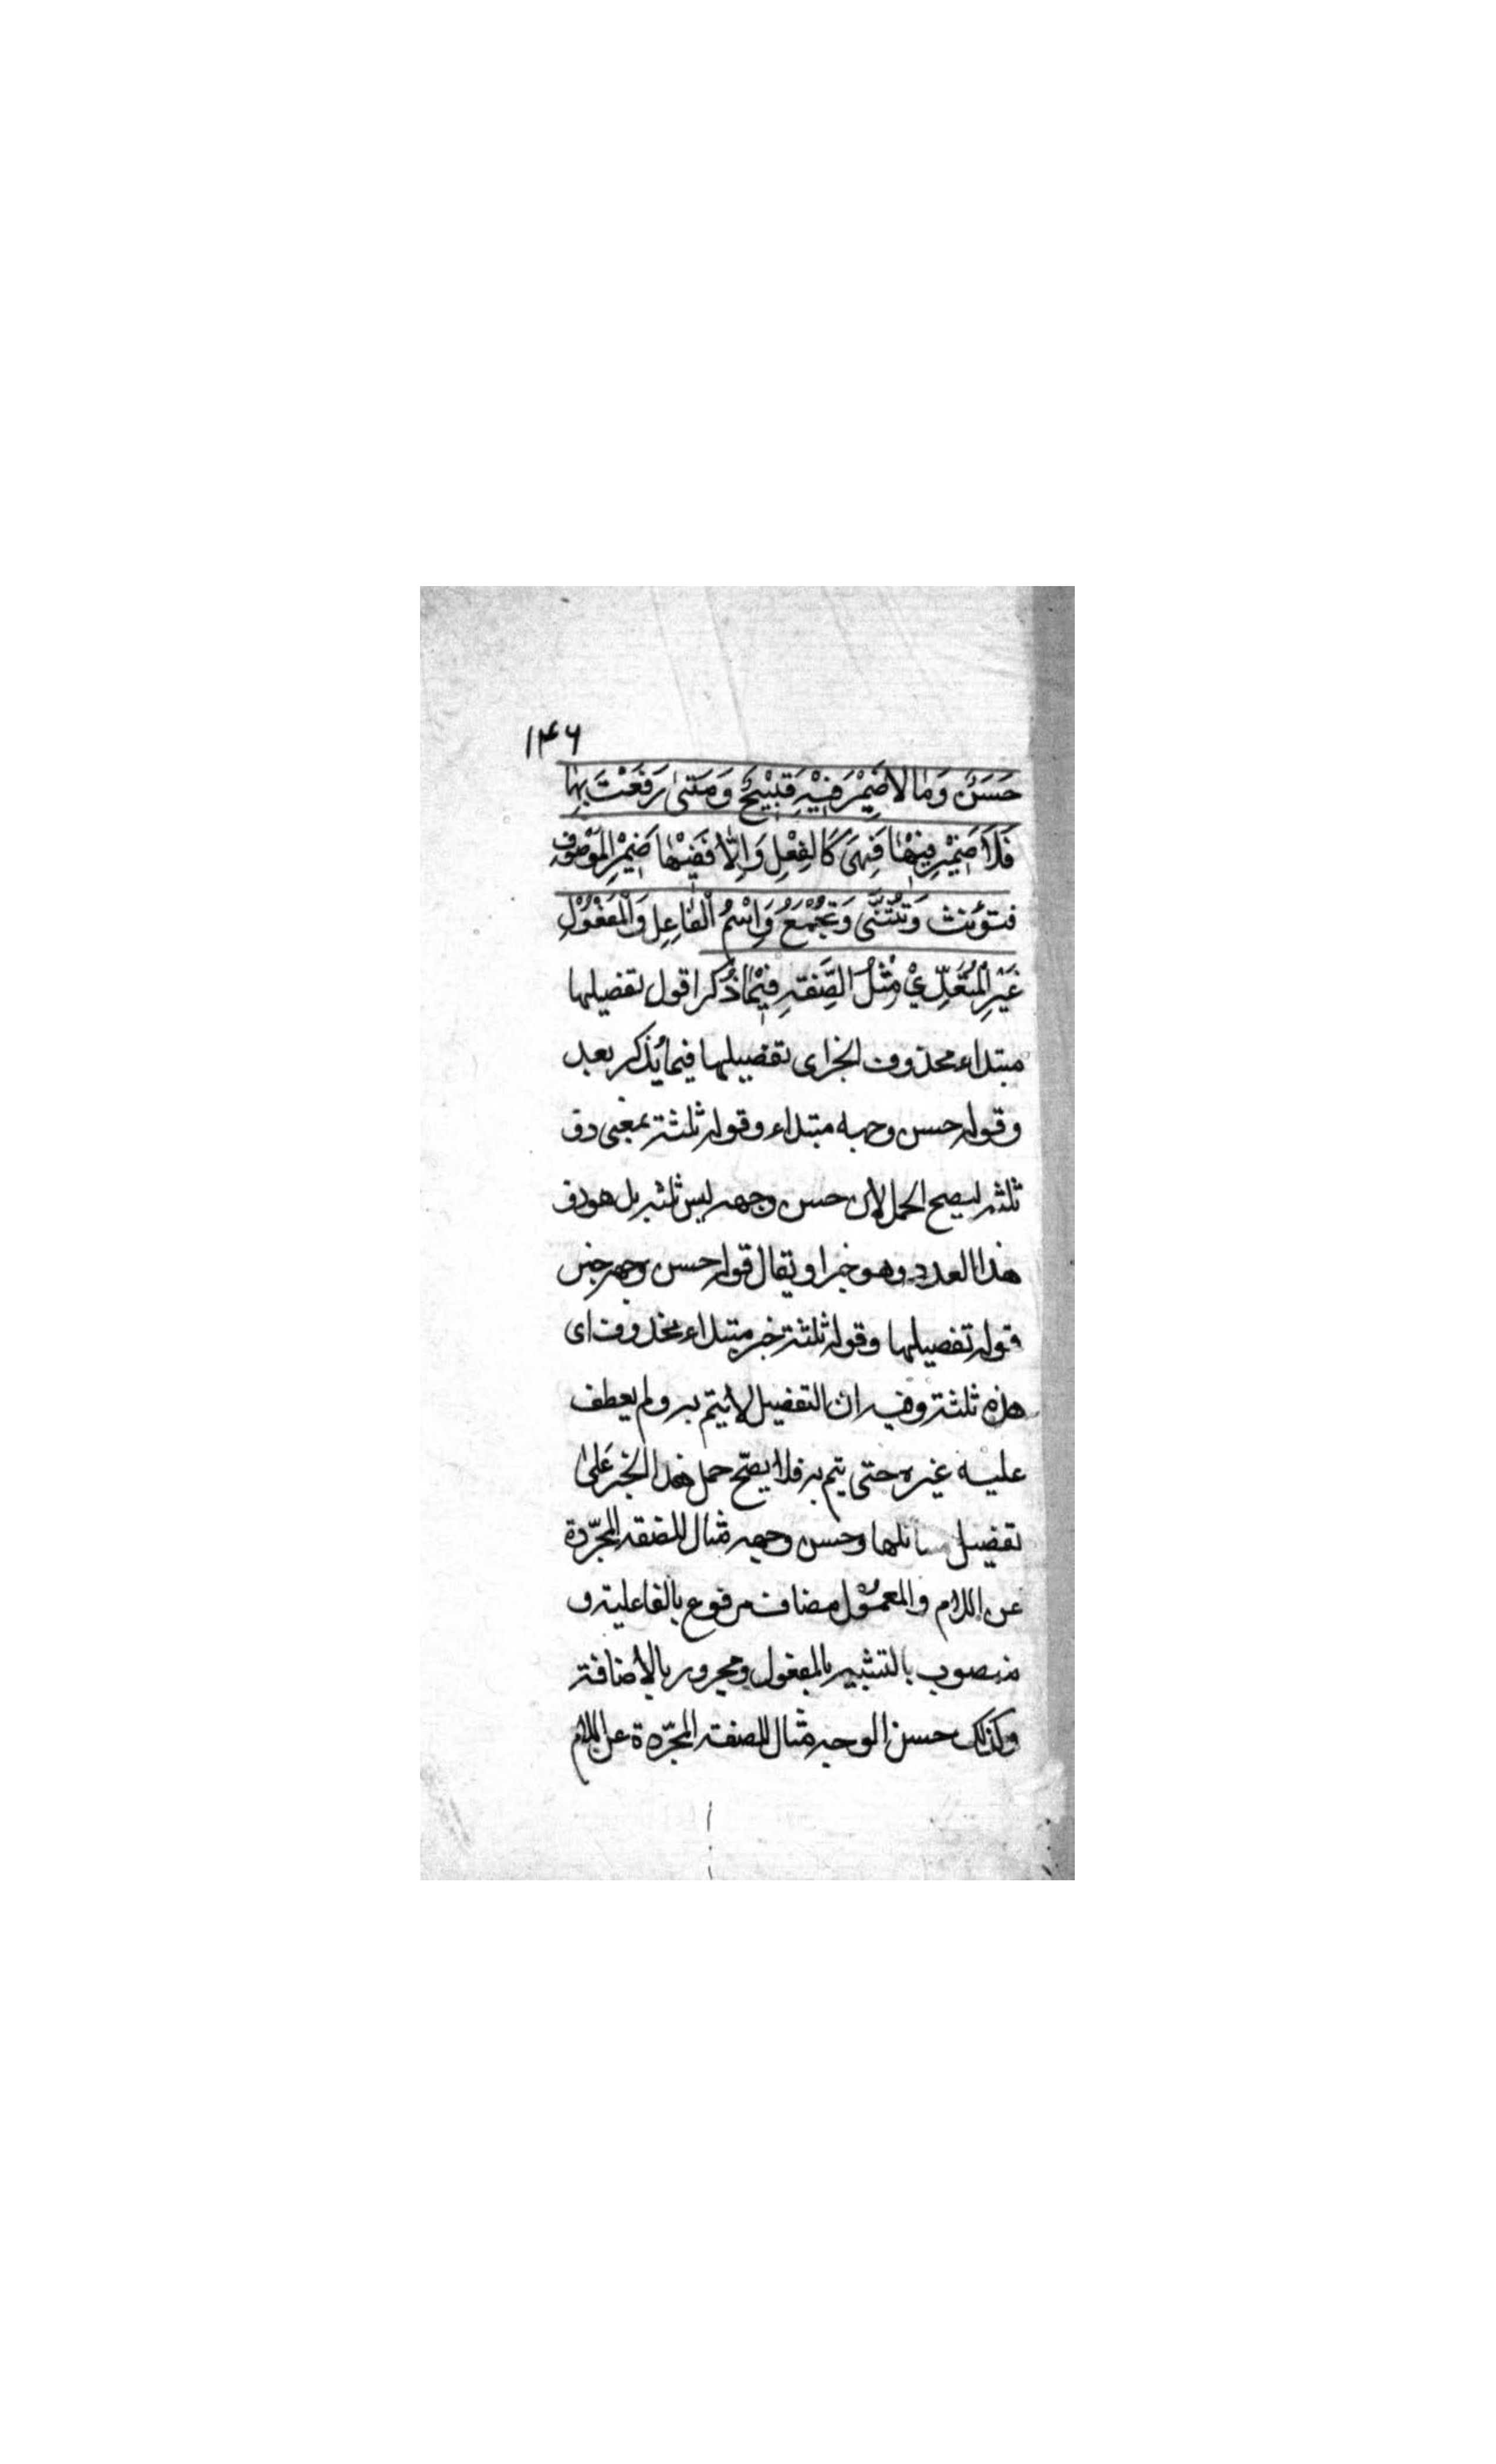 ۱۴۶
حَسَنٌ وَمَا لَا ضَمِيْرَ فِيْهِ قَبِيْحٌ وَمَتىٰ رَفَعْتَ بِهَا
فَلَا ضَمِيْرَ فِيْهَا فَهِىَ كَالفِعْلِ وَاِلَّا فَفِيْهَا ضَمِيْرُ الْمَوْصُوْفِ
فتؤنث وَتُثَنّٰى وَتُجْمَعُ وَاِسْمُ الْفَاعِلِ وَالْمَفْعُوْلِ
غَيْرِ الْمُتَعَدِّيْ مِثْلُ الصِّفَةِ فِيْمَا ذُكِرَ اقول تفضيلها
مبتداء محذوف الخبر اى تفضيلها فيما يُذكر بعد
وقوله حسن وجهه مبتداء وقوله ثلثة بمعنى ذو
ثلثه ليصح الحمل لان حسن وجهه ليس ثلثه بل هو ذو
هذا العدد وهو خبر او يقال قوله حسن وجهه خبر
قوله تفصيلها وقوله ثلثة خبر مبتداء محذوف اى
هذه ثلثة وفيه ان التفضيل لا يتم به ولم يعطف
عليه غيره حتى يتم به فلا يصّح حمل هذا الخبر عَلىٰ
تفضيل مسائلها وحسن وجهه مثال للصفة المجرّدة
عن اللام والمعمُول مضاف مرفوع بالفاعلية و
منصوب بالتشبيه بالمفعول ومجرور بالاضافة
وكذلك حسن الوجه مثال للصفة المجرّدة عن اللام